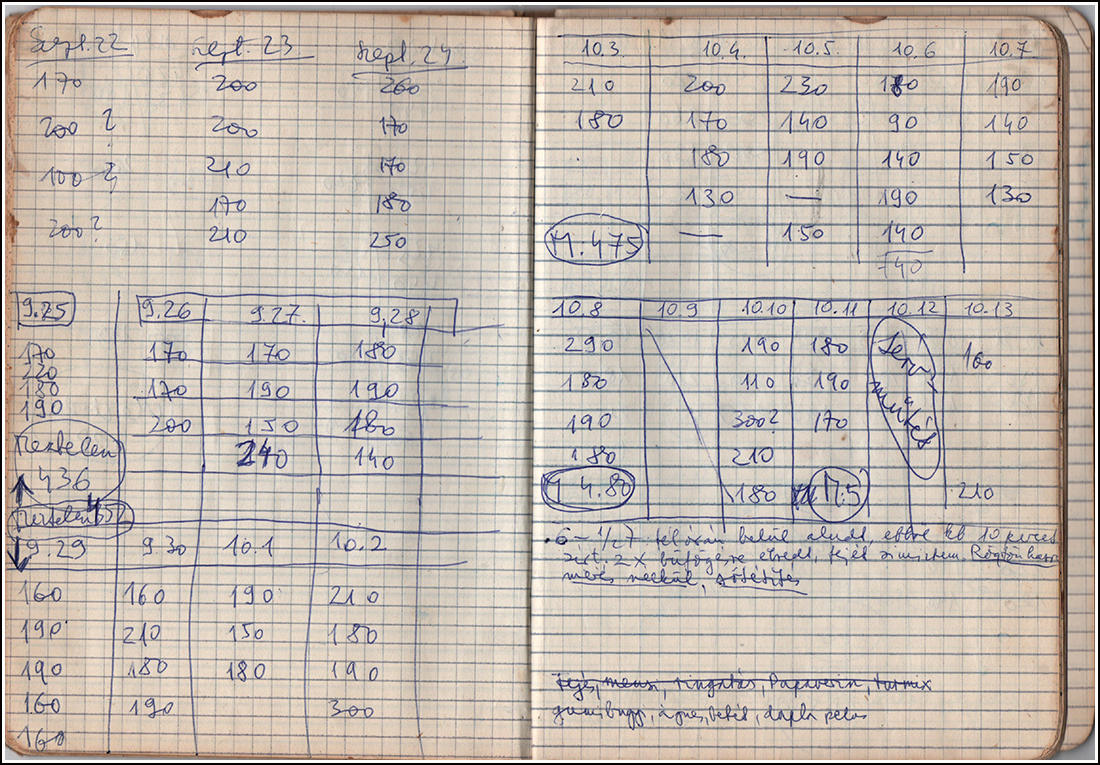 Sept. 22 Sept. 23 Sept. 24.
170 200 260
200 ? 200 170
100 ? 210 170
170 180
200 ? 210 250
9.25 9.26 9.27. 9.28
170 170 170 180
220
180 170 190 190
190
200 150 180
Meztelen 240 140
436
Meztelen 452
9.29 9.30 10.1 10.2
160 160 190 210
190 210 150 180
190 180 180 190
160 190 300
160
10.3. 10.4. 10.5. 10.6 10.7.
210 200 230 180 190
180 170 140 90 140
180 190 140 150
130 — 190 130
M: 475 — 150 140
740
10.8 10.9 10.10 10.11 10.12 10.13
290 190 180 160
180 110 190
190 300? 170
180 210
M 4.80 180 M:5 210
6 – 1/2 7 félórán belül aludt, ebből kb 10 percet
sírt, 2 x büfögésre ébredt,
nélkül, sötétítés
Tejes, ringatás, Papaverin, turmix